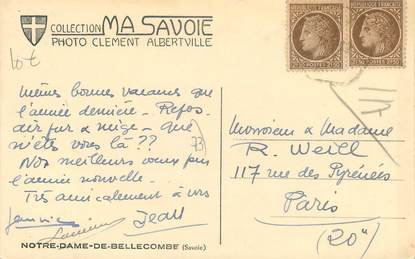 COLLECTION MA SAVOIE
PHOTO CLEMENT ALBERTVILLE
Mêmes bonnes vacances que
l'année dernière - Repos
air pur & neige - Que
n'êtes vous là ??
Nos meilleurs voeux pour
l'année nouvelle -
Très amicalement à vous
Jean
73
Monsieur & Madame
R. Weill
117 rue des Pyrénées
Paris
(20e)
NOTRE-DAME-DE-BELLECOMBE (Savoie)
REPUBLIQUE FRANÇAISE
2F50 POSTES 2F50
REPUBLIQUE FRANÇAISE
2F50 POSTES 2F50